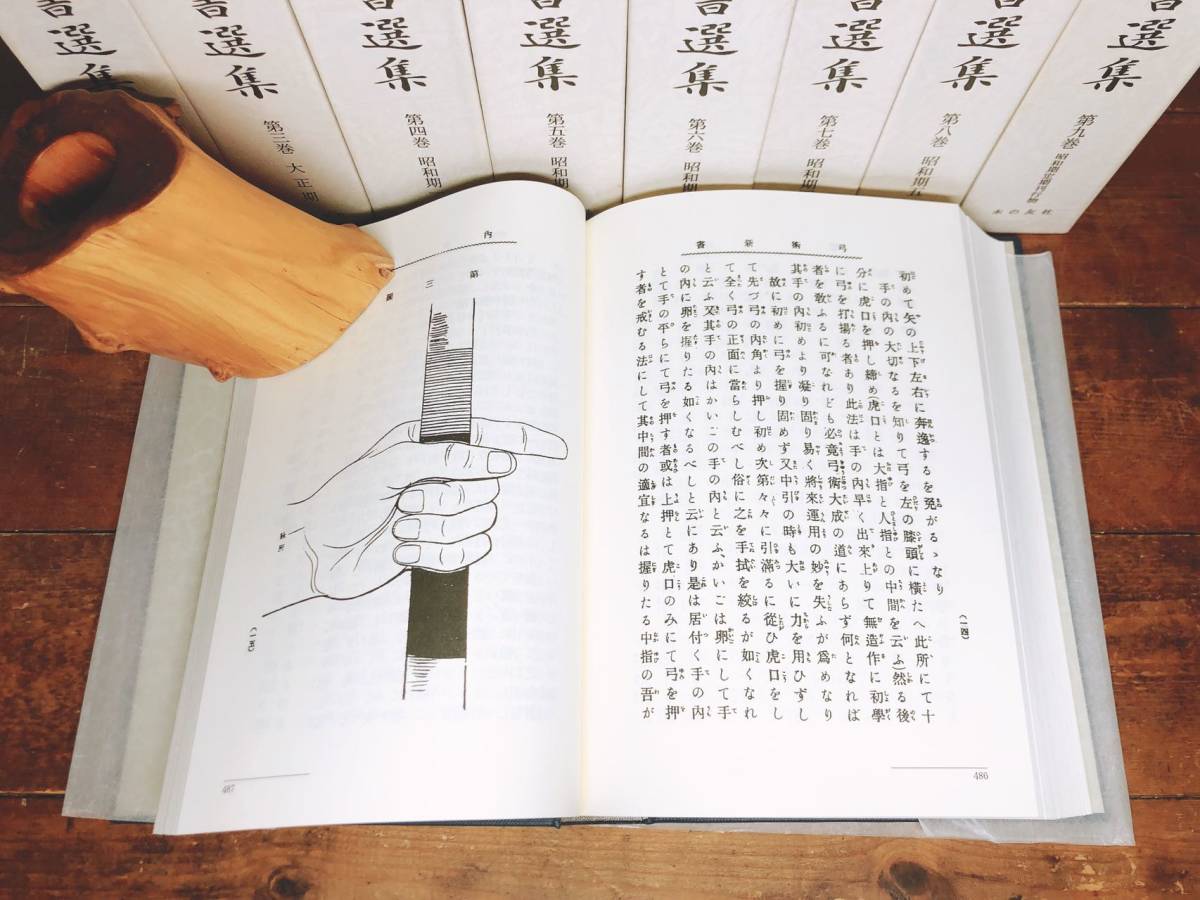 書選集
書選集 第三巻 大正期
書選集 第四巻 昭和期
書選集 第五巻 昭和期
書選集 第六巻 昭和期
書選集 第七巻 昭和期
書選集 第八巻 昭和期
書選集 第九巻
弓術新書
初めて矢の上下左右に奔逸するを免がるゝなり
手の內の大切なるを知りて弓を左の膝頭に橫たへ此所にて十
分に虎口を押し締め(虎口とは大指と人指との中間を云ふ)然る後
に弓を打揚る者あり此法は手の內早く出來上りて無造作に初學
者を敎ふるに可なれども必竟弓術大成の道にあらず何となれば
其手の內初めより凝り固り易く將來運用の妙を失ふが爲めなり
故に初めに弓を握り固めず又中引の時も大いに力を用ひずし
て先づ弓の內角より押し初め次第々々に引滿るに從ひ虎口をし
て全く弓の正面に當らしむべし俗に之を手拭を絞るが如くなれ
と云ふ又其手の內はかいごの手の內と云ふ、かいごは卵にして手
の內に卵を握りたる如くなるべしと云にあり是は居付く手の內
とて手の平らにて弓を押す者或は上押とて虎口のみにて弓を押
す者を戒むる法にして其中間の適宜なるは握りたる中指の吾が
(一四)
486
內
第三圖
(一五)
487